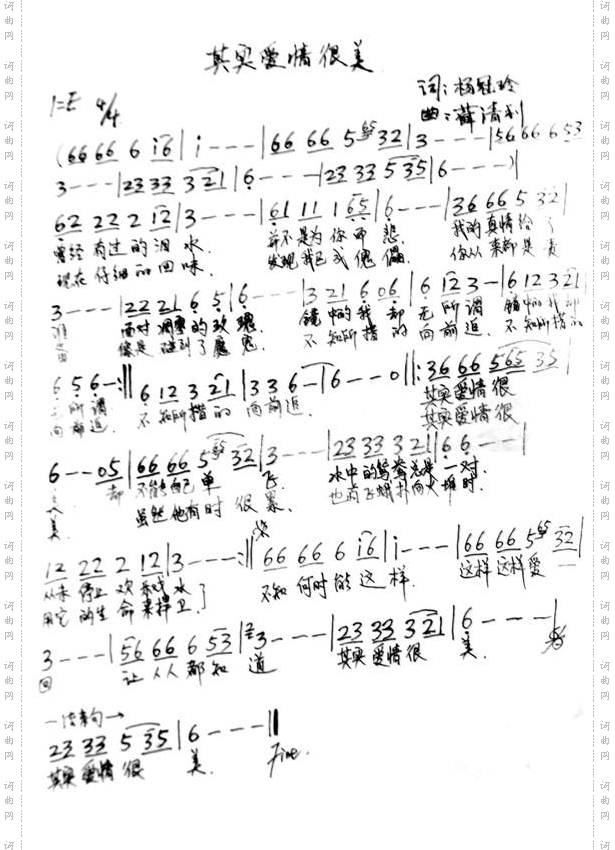 其实爱情很美
1=E 4/4
词:杨冠玲
曲:薛清利
(66 66 6 i6 | i - - - | 66 66 5 65 32 | 3 - - - | 56 66 6 53
3 - - - | 23 33 3 21 | 6 - - - | 23 33 5 35 | 6 - - - )|
62 22 2 12 | 3 - - - | 61 11 1 65 | 6 - - - | 36 66 5 32 |
曾经 有过 的 泪 水. 并不 是为 你 而 悲. 我的 真情 给了
现在 仔细 的 回味. 发现 我已 成 傀儡. 你从 来都 是
3 - - - | 22 21 6 5 | 6 - - - | 3 21 6 06 | 6 12 3 - | 6 12 3 21 |
谁 面对 凋零 的 玫瑰. 镜 中的 我 却 无 所谓 镜 中的 我 却
像是 碰到 了 魔鬼. 不 知所措 的 向前追. 不 知所措 的
6 5 6 - :|| 6 12 3 21 | 3 3 6 - | 6 - - 0 ||: 36 66 565 35 |
无 所 谓 不 知所措 的 向前追. 其实 爱情 很
向 前 追. 其实 爱情 很
6 - - 05 | 66 66 5 65 32 | 3 - - - | 23 33 3 21 | 6 6 - - |
却 不能 自己 单 飞. 水中 的鸳鸯 总是 一对.
美. 虽然 他有 时 很 累. 也有 飞蛾 扑向 火堆时.
12 22 2 12 | 3 - - - :|| 66 66 6 i6 | i - - - | 66 66 5 65 32 |
从未 停止 欢乐 戏水 不知 何时 能 这样. 这样 这样 爱 一
用它 的生 命 来捍卫.
3 - - - | 56 66 6 53 | 3 - - - | 23 33 3 21 | 6 - - - |
回 让人 人 都 知 道 其实 爱情 很 美.
-结束句→
23 33 5 35 | 6 - - - ||
其实 爱情 很 美. Fine.
词曲网